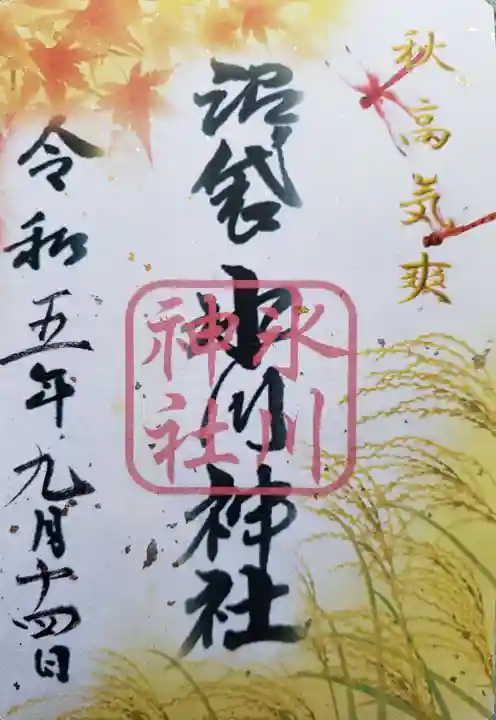 秋高気爽
沼袋氷川神社
氷川
神社
令和五年九月十四日